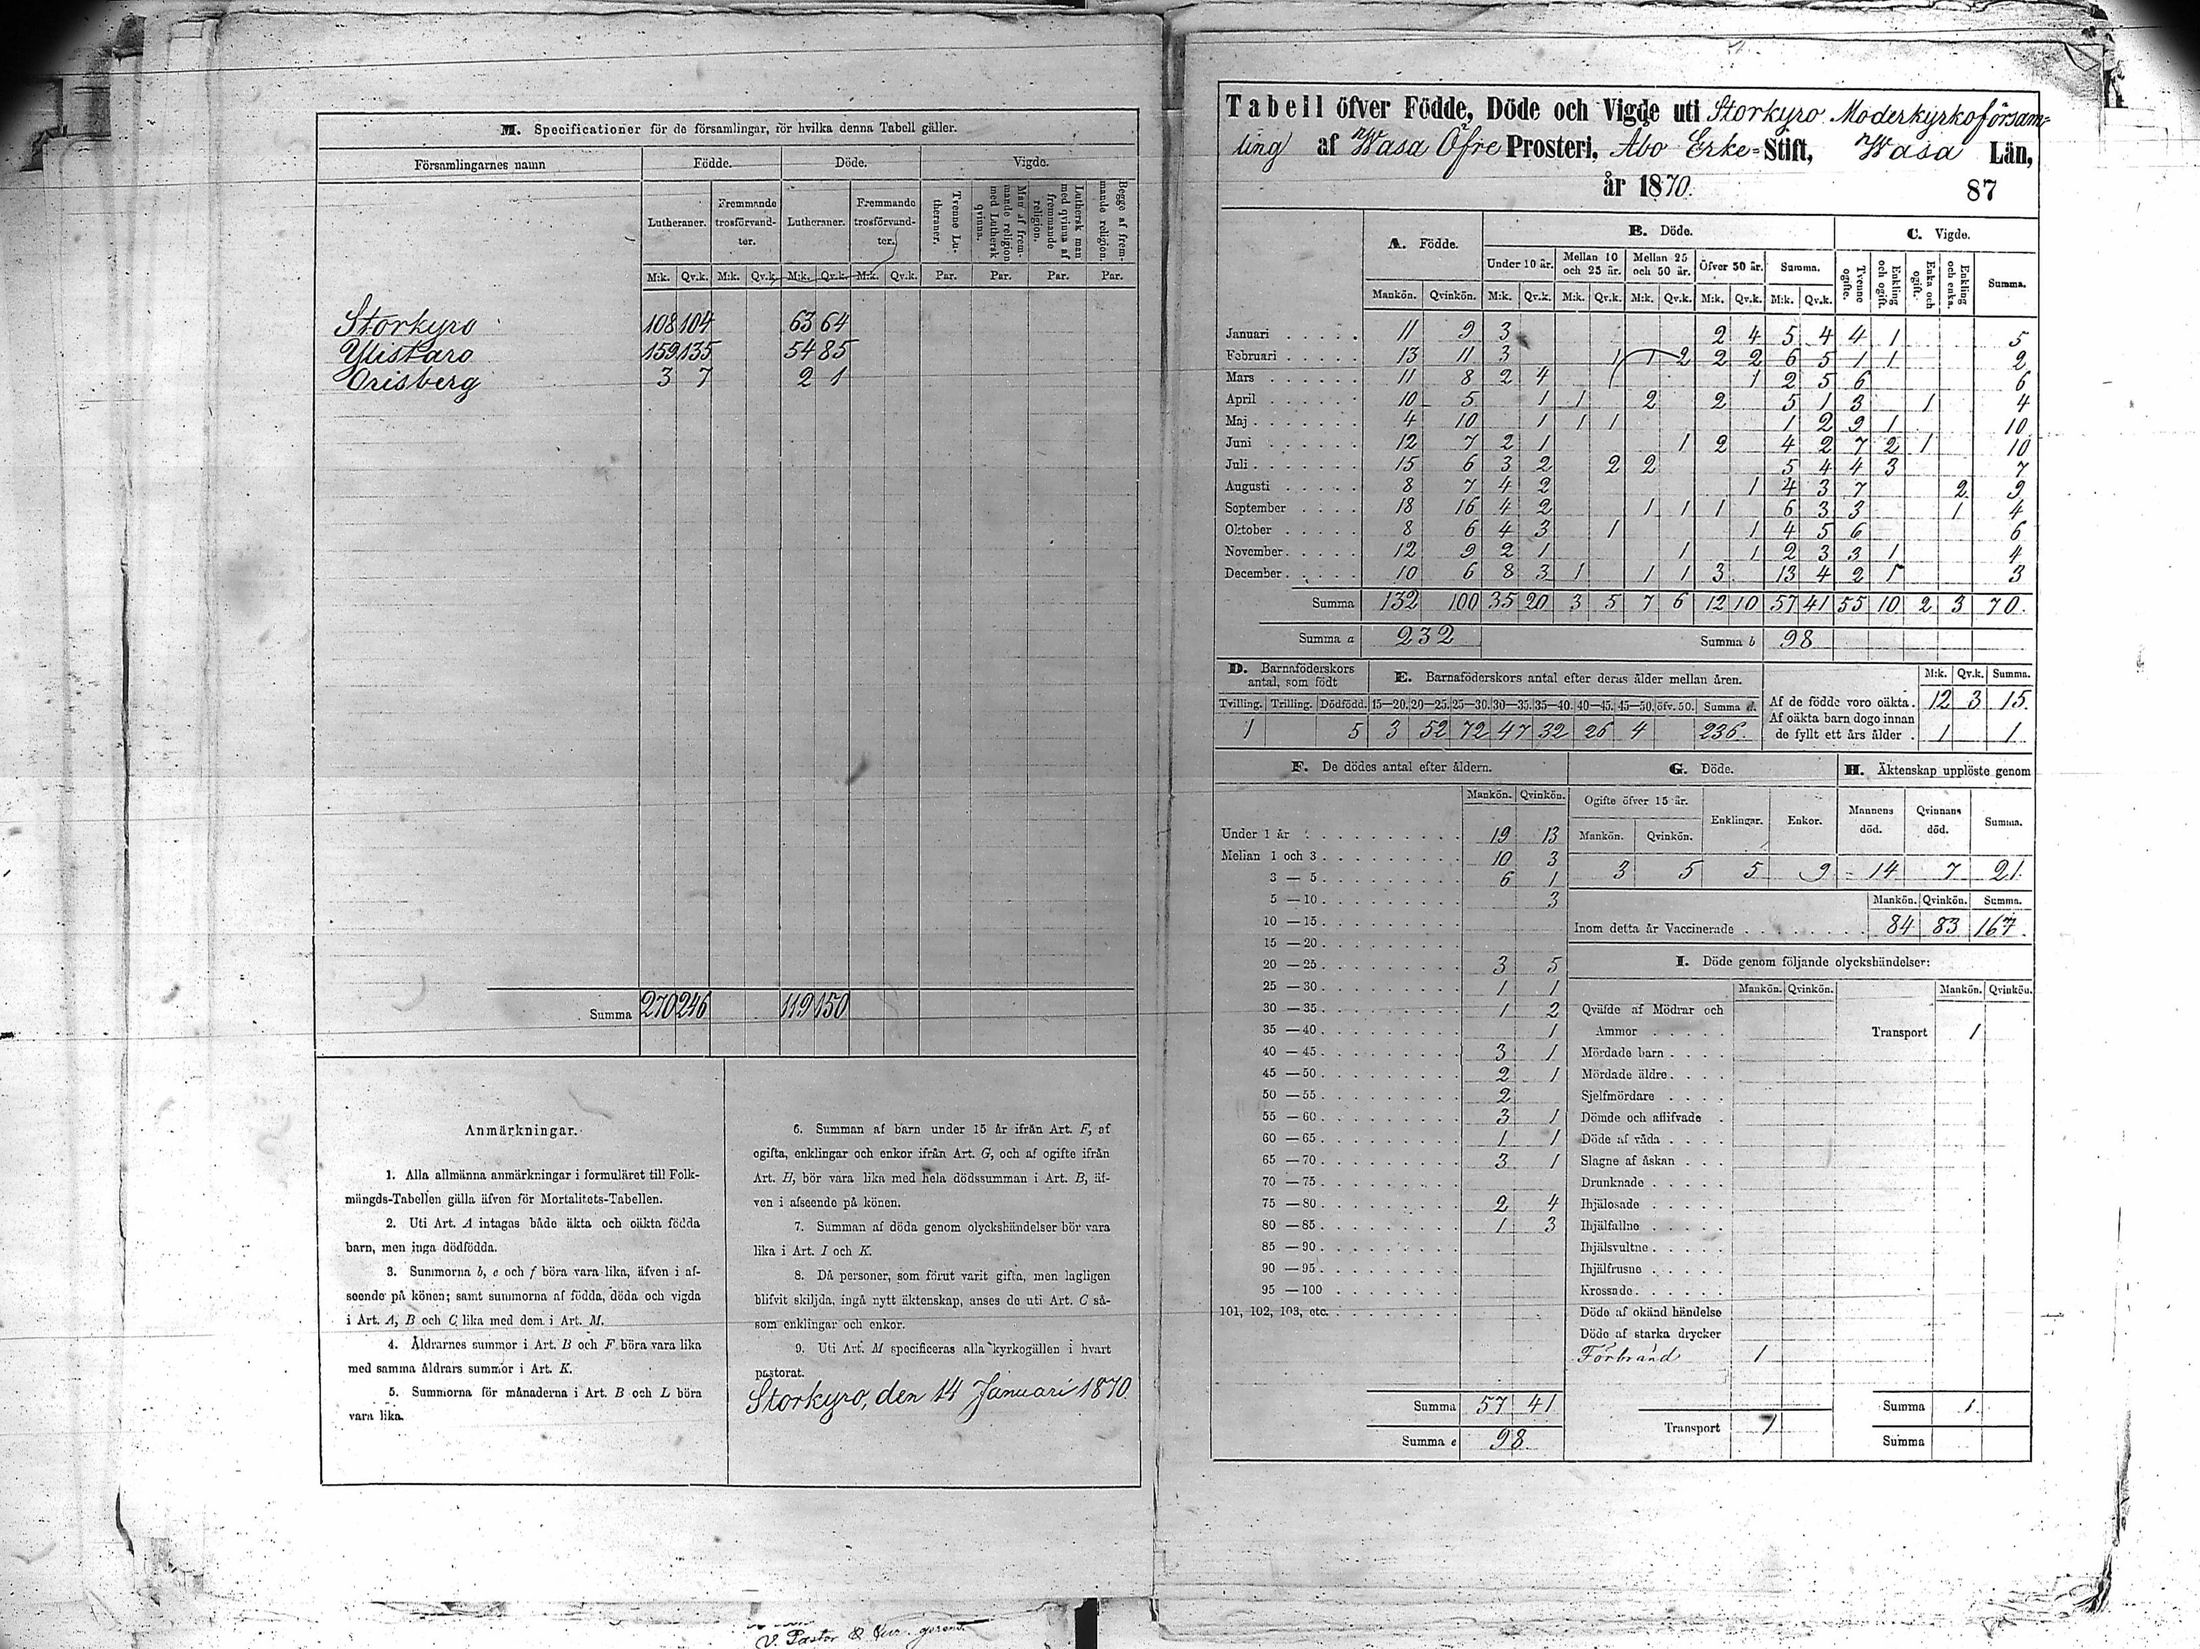 M. Specificationer för de församlingar, för hvilka denna Tabell gäller.
Församlingarnes namn Födde. Döde. Vigde.
Lutheraner. Fremmande trosförvandter. Lutheraner. Fremmande trosförvandter. Tvenne Lutheraner. Man af fremmande religion med Luthersk qvinna. Luthersk man med qvinna af fremmande religion. Begge af fremmande religion.
M:k. Qv.k. M:k. Qv.k. M:k. Qv.k. M:k. Qv.k. Par. Par. Par. Par.
Storkyro 108 104 63 64
Ylistaro 159 135 54 85
Orisberg 3 7 2 1
Summa 270 246 119 150
Anmärkningar.
1. Alla allmänna anmärkningar i formuläret till Folk-
mängds-Tabellen gälla äfven för Mortalitets-Tabellen.
2. Uti Art. A intagas både äkta och oäkta födda
barn, men inga dödfödda.
3. Summorna b, e och f böra vara lika, äfven i af-
seende på könen; samt summorna af födda, döda och vigda
i Art. A, B och C lika med dem i Art. M.
4. Åldrarnes summor i Art. B och F böra vara lika
med samma åldrars summor i Art. K.
5. Summorna för månaderna i Art. B och L böra
vara lika.
6. Summan af barn under 15 år ifrån Art. F, af
ogifta, enklingar och enkor ifrån Art. G, och af ogifte ifrån
Art. H, bör vara lika med hela dödssumman i Art. B, äf-
ven i afseende på könen.
7. Summan af döda genom olyckshändelser bör vara
lika i Art. I och K.
8. Då personer, som förut varit gifta, men lagligen
blifvit skiljda, ingå nytt äktenskap, anses de uti Art. C så-
som enklingar och enkor.
9. Uti Art. M specificeras alla kyrkogällen i hvart
pastorat.
Storkyro, den 14 Januari 1870.
V. Pastor
Tabell öfver Födde, Döde och Vigde uti Storkyro Moderkyrkoförsam-
ling af Wasa Öfre Prosteri, Åbo Erke-Stift, Wasa Län,
år 1870. 87
A. Födde. B. Döde. C. Vigde.
Under 10 år. Mellan 10 och 25 år. Mellan 25 och 50 år. Öfver 50 år. Summa. Tvenne ogifte. Enkling och ogift. Enka och ogift. Enkling och enka. Summa.
Mankön. Qvinkön. M:k. Qv.k. M:k. Qv.k. M:k. Qv.k. M:k. Qv.k. M:k. Qv.k.
Januari 11 9 3 2 4 5 4 4 1 5
Februari 13 11 3 1 1 2 2 2 6 5 1 1 2
Mars 11 8 2 4 1 2 5 6 6
April 10 5 1 1 2 2 5 1 3 1 4
Maj 4 10 1 1 1 1 2 9 1 10
Juni 12 7 2 1 1 2 4 2 7 2 1 10
Juli 15 6 3 2 2 2 5 4 4 3 7
Augusti 8 7 4 2 1 4 3 7 2 9
September 18 16 4 2 1 1 1 6 3 3 1 4
Oktober 8 6 4 3 1 1 4 5 6 6
November 12 9 2 1 1 1 2 3 3 1 4
December 10 6 8 3 1 1 1 3 13 4 2 1 3
Summa 132 100 35 20 3 5 7 6 12 10 57 41 55 10 2 3 70.
Summa a 232 Summa b 98
D. Barnaföderskors antal, som födt
Tvilling. Trilling. Dödfödd.
1 5
E. Barnaföderskors antal efter deras ålder mellan åren.
15—20. 20—25. 25—30. 30—35. 35—40. 40—45. 45—50. öfv. 50. Summa d.
3 52 72 47 32 26 4 236.
M:k. Qv.k. Summa.
Af de födde voro oäkta. 12 3 15
Af oäkta barn dogo innan
de fyllt ett års ålder . 1 1
F. De dödes antal efter åldern.
Mankön. Qvinkön.
Under 1 år 19 13
Mellan 1 och 3 10 3
3 — 5 6 1
5 — 10 3
10 — 15
15 — 20
20 — 25 3 5
25 — 30 1 1
30 — 35 1 2
35 — 40 1
40 — 45 3 1
45 — 50 2 1
50 — 55 2
55 — 60 3 1
60 — 65 1 1
65 — 70 3 1
70 — 75
75 — 80 2 4
80 — 85 1 3
85 — 90
90 — 95
95 — 100
101, 102, 103, etc.
Summa 57 41
Summa e 98
G. Döde.
Ogifte öfver 15 år. Enklingar. Enkor.
Mankön. Qvinkön.
3 5 5 9
H. Äktenskap upplöste genom
Mannens död. Qvinnans död. Summa.
14 7 21
Mankön. Qvinkön. Summa.
Inom detta år Vaccinerade 84 83 167.
I. Döde genom följande olyckshändelser:
Mankön. Qvinkön. Mankön. Qvinkön.
Qväfde af Mödrar och
Ammor Transport 1
Mördade barn
Mördade äldre
Sjelfmördare
Dömde och aflifvade
Döde af våda
Slagne af åskan
Drunknade
Ihjälosade
Ihjälfallne
Ihjälsvultne
Ihjälfrusne
Krossade
Döde af okänd händelse
Döde af starka drycker
Förbränd 1
Summa 1.
Transport 1
Summa